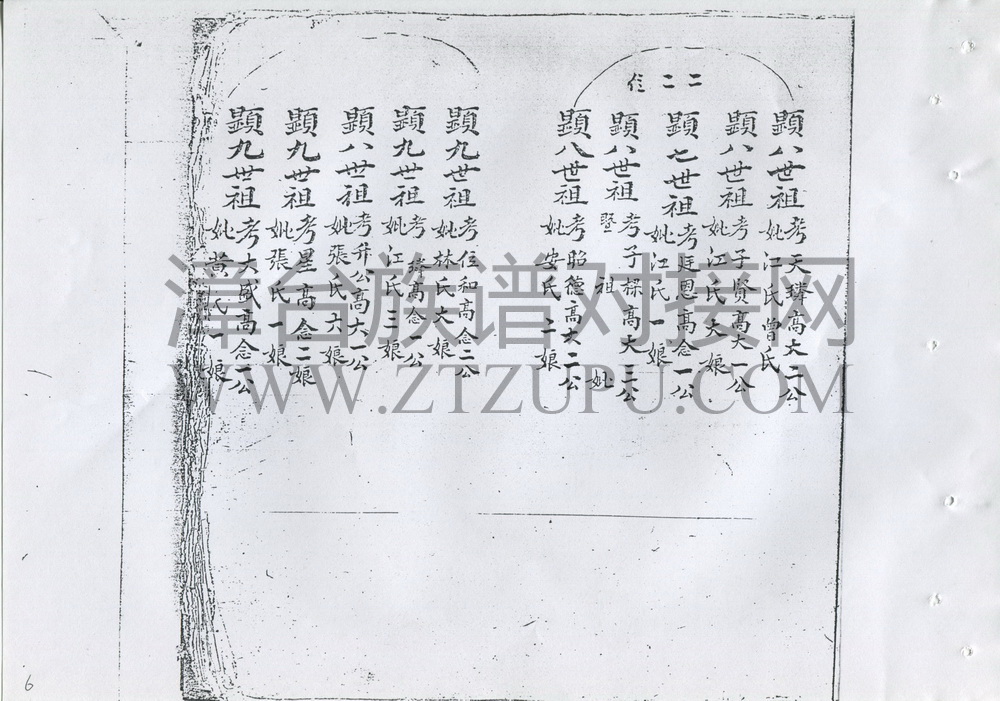 二二
顕八世祖 考天璘高大二公 妣江氏曾氏
顕八世祖 考子賢高大一公 妣江氏大娘
顕七世祖 考廷恩高念一公 妣江氏一娘
顕八世祖 考子禄高大三公 暨祖妣
顕八世祖 考昭德高大二公 妣安氏二娘
顕九世祖 考位和高念二公 妣林氏大娘
顕九世祖 考 高念一公 妣江氏三娘
顕八世祖 考升公高大一公 妣張氏六娘
顕九世祖 考星高念二娘 妣張氏一娘
顕九世祖 考大盛高念一公 妣黄氏一娘
漳台族谱对接网
WWW.ZTZUPU.COM
6